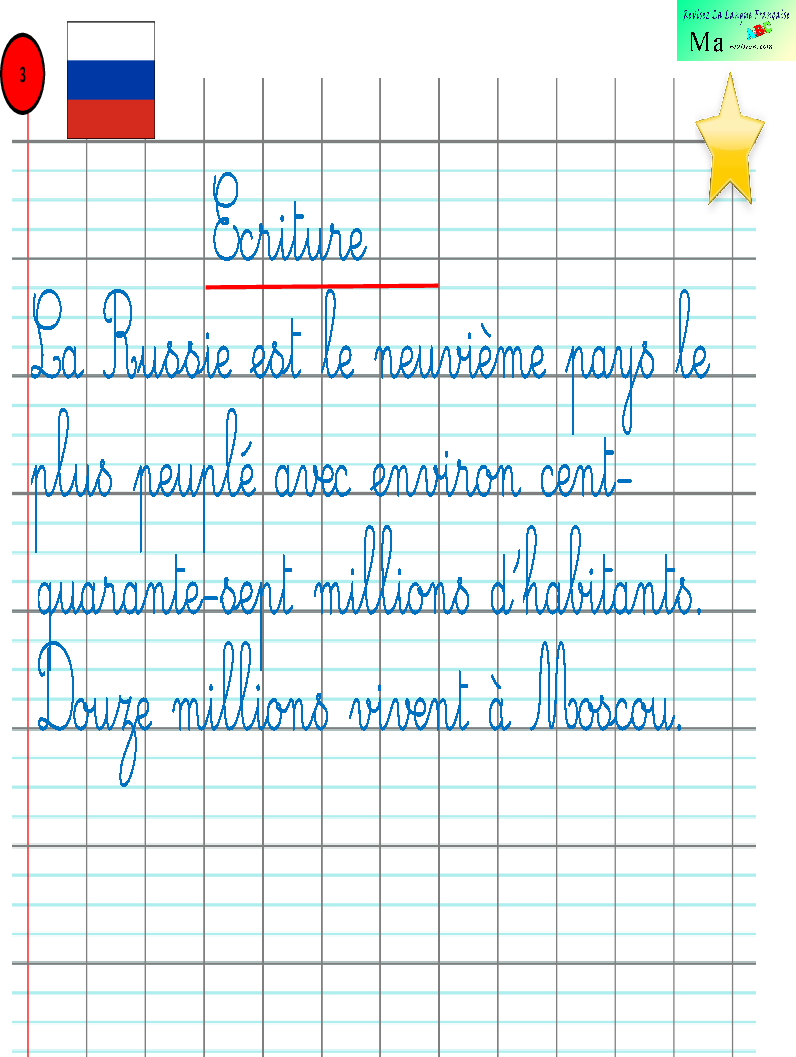 Revisez La Langue Française
Ma
ABC
revision.com
3
Ecriture
La Russie est le neuvième pays le
plus peuplé avec environ cent-
quarante-sept millions d'habitants.
Douze millions vivent à Moscou.